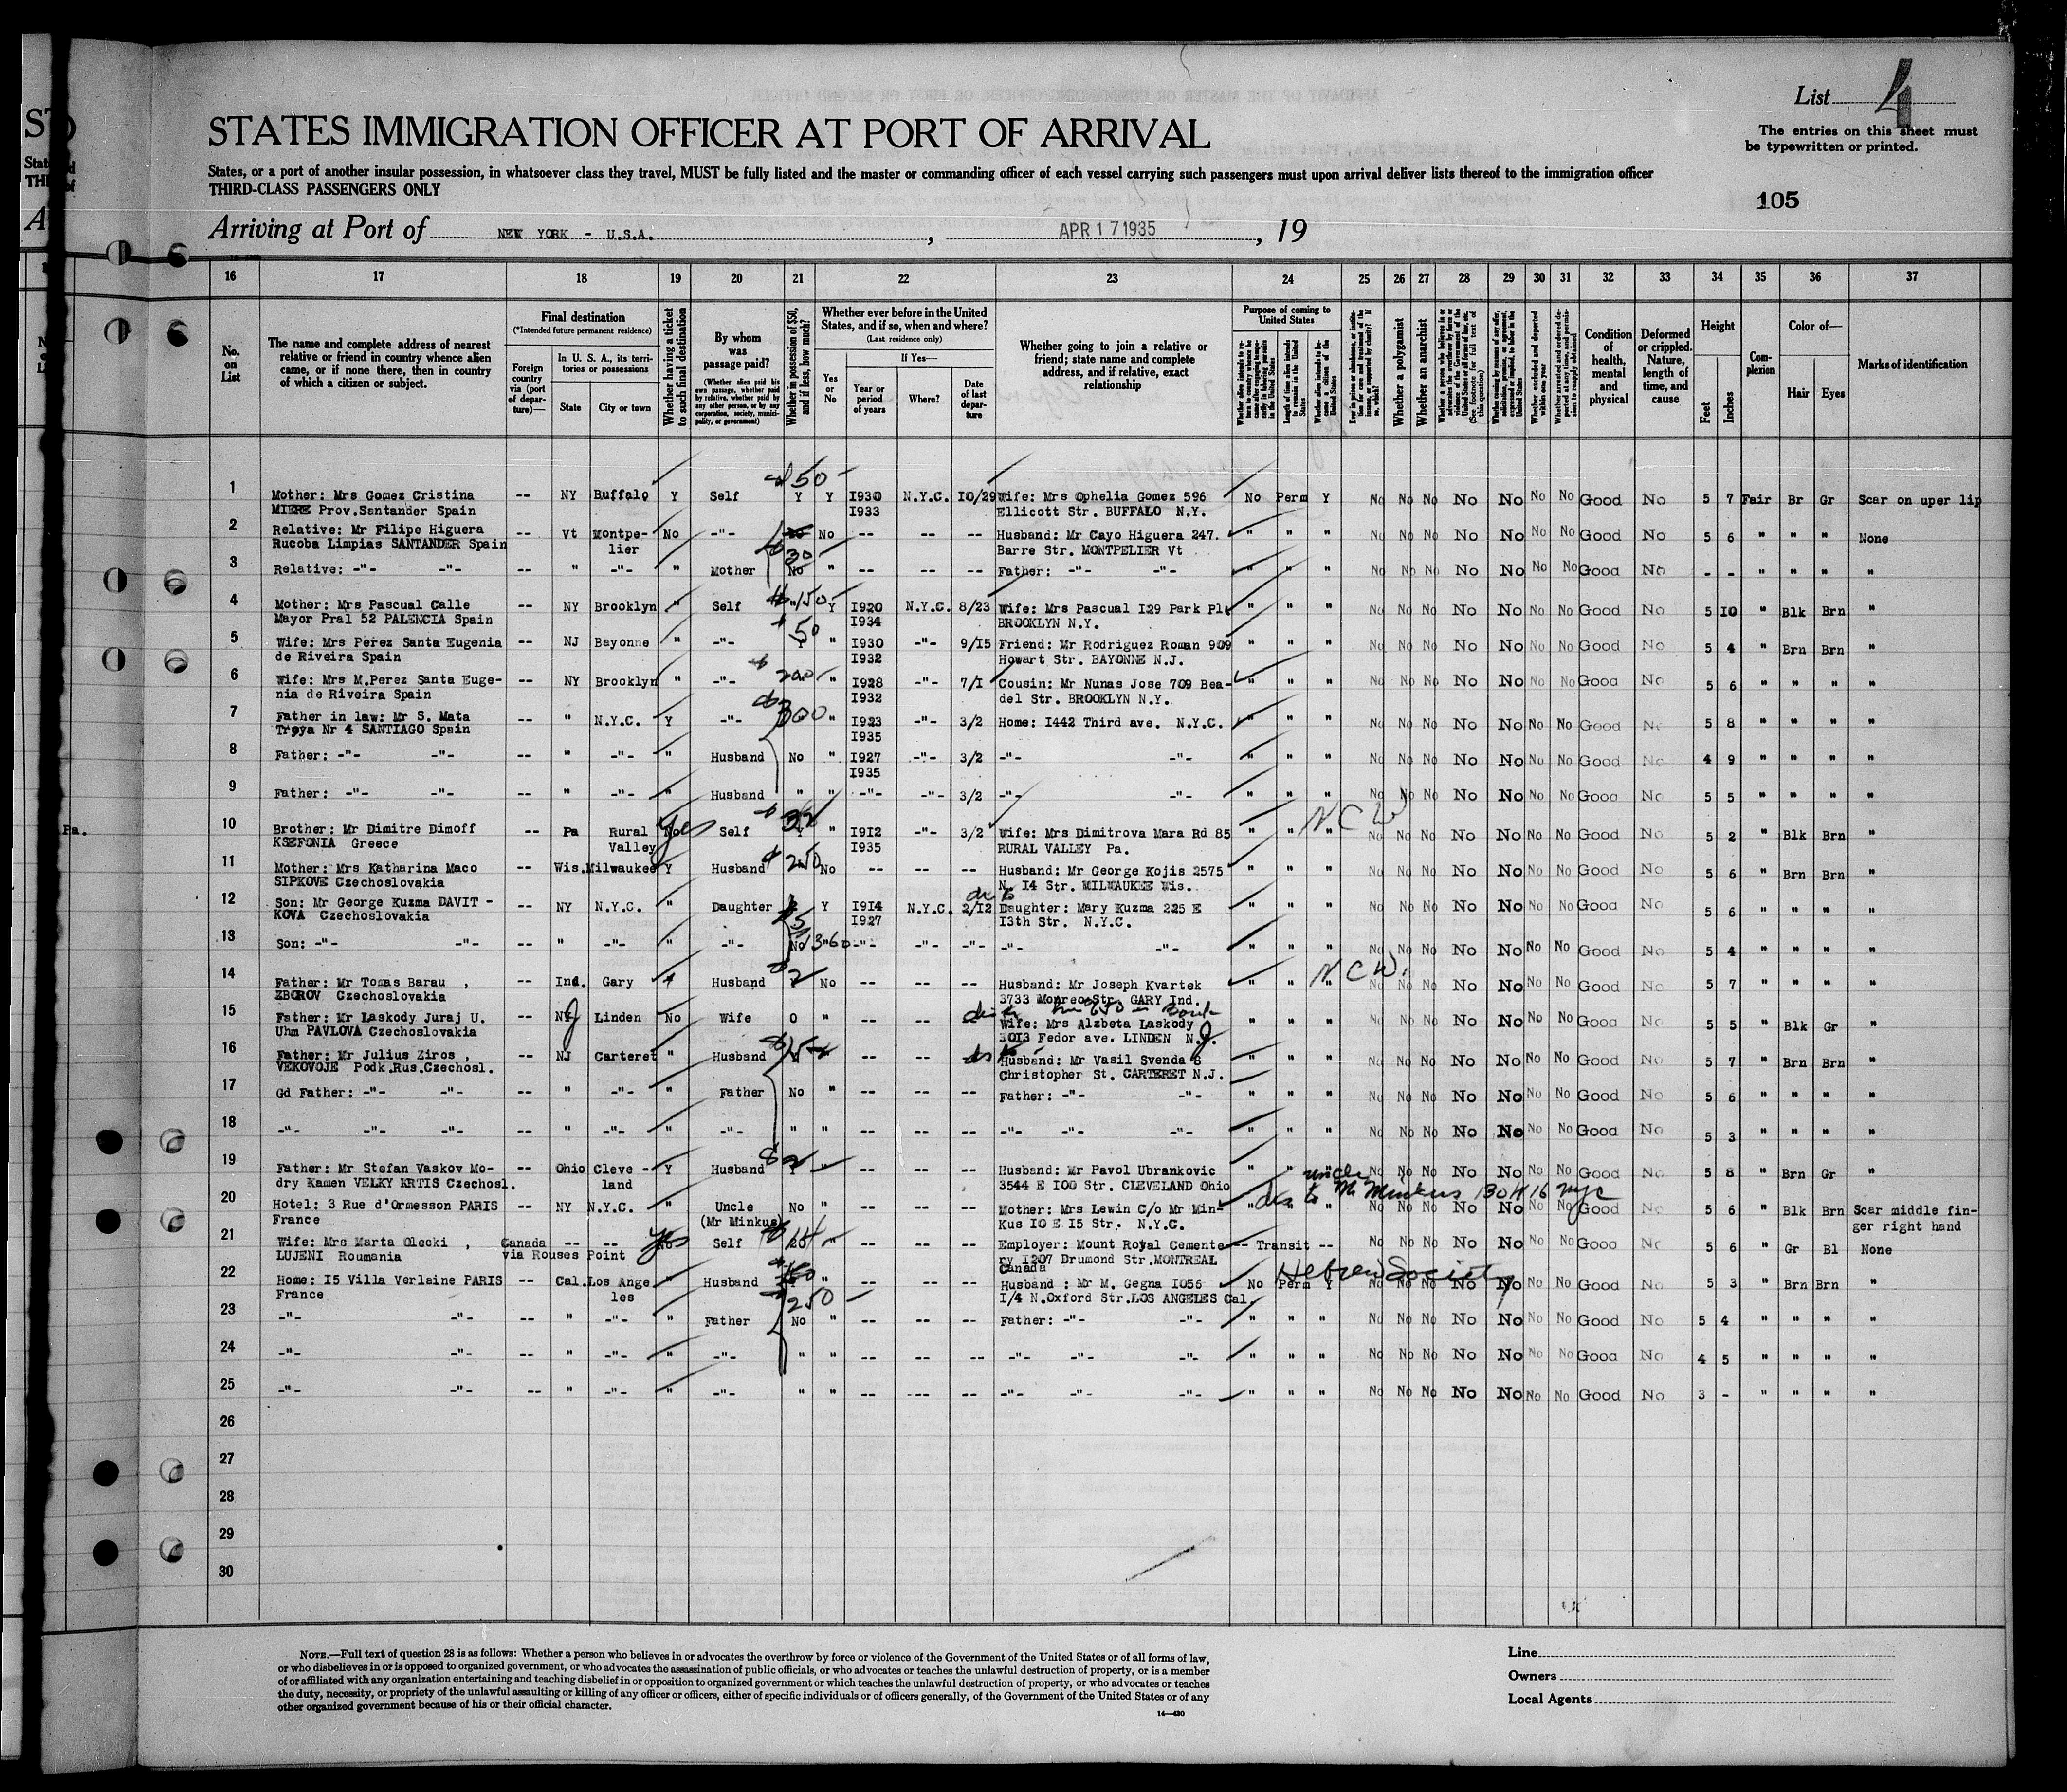 List 4
STATES IMMIGRATION OFFICER AT PORT OF ARRIVAL
The entries on this sheet must
be typewritten or printed.
States, or a port of another insular possession, in whatsoever class they travel, MUST be fully listed and the master or commanding officer of each vessel carrying such passengers must upon arrival deliver lists thereof to the immigration officer
THIRD-CLASS PASSENGERS ONLY
105
Arriving at Port of NEW YORK - U.S.A. , APR 17 1935 , 19
16 17 18 19 20 21 22 23 24 25 26 27 28 29 30 31 32 33 34 35 36 37
No. on List
The name and complete address of nearest relative or friend in country whence alien came, or if none there, then in country of which a citizen or subject.
Final destination
(*Intended future permanent residence)
Foreign country via (port of departure)—
In U. S. A., its territories or possessions
State
City or town
Whether having a ticket to such final destination
By whom was passage paid?
(Whether alien paid his own passage, whether paid by relative, whether paid by any other person, or by any corporation, society, municipality, or government)
Whether in possession of $50, and if less, how much?
Whether ever before in the United States, and if so, when and where?
(Last residence only)
Yes or No
If Yes—
Year or period of years
Where?
Date of last departure
Whether going to join a relative or friend; state name and complete address, and if relative, exact relationship
Purpose of coming to United States
Whether a polygamist
Whether an anarchist
Condition of health, mental and physical
Deformed or crippled. Nature, length of time, and cause
Height
Feet
Inches
Complexion
Color of—
Hair
Eyes
Marks of identification
1 Mother: Mrs Gomez Cristina -- NY Buffalo Y Self $50 Y Y I930 N.Y.C. I0/29 Wife: Mrs Ophelia Gomez 596 No Perm Y No No No No No No No Good No 5 7 Fair Br Gr Scar on uper lip
MIERE Prov.Santander Spain I933 Ellicott Str. BUFFALO N.Y.
2 Relative: Mr Filipe Higuera -- Vt Montpe- No -"- No -- -- -- Husband: Mr Cayo Higuera 247. " " " No No No No No No No Good No 5 6 " " " None
Rucoba Limpias SANTANDER Spain lier 30 Barre Str. MONTPELIER Vt
3 Relative: -"- -"- -- " -"- " Mother No " -- -- -- Father: -"- -"- " " " No No No No No No No Good No - - " " " "
4 Mother: Mrs Pascual Calle -- NY Brooklyn " Self " 150 Y I920 N.Y.C. 8/23 Wife: Mrs Pascual I29 Park Pl. " " " No No No No No No No Good No 5 I0 " Blk Brn "
Mayor Pral 52 PALENCIA Spain I934 BROOKLYN N.Y.
5 Wife: Mrs Perez Santa Eugenia -- NJ Bayonne " -"- 50 " I930 -"- 9/I5 Friend: Mr Rodriguez Roman 909 " " " No No No No No No No Good No 5 4 " Brn Brn "
de Riveira Spain I932 Howart Str. BAYONNE N.J.
6 Wife: Mrs M.Perez Santa Euge- -- NY Brooklyn " -"- 200 " I928 -"- 7/I Cousin: Mr Nunas Jose 709 Bea- " " No No No No No No No Good No 5 6 " " " "
nia de Riveira Spain I932 del Str. BROOKLYN N.Y.
7 Father in law: Mr S. Mata -- " N.Y.C. Y -"- 300 " I923 -"- 3/2 Home: I442 Third ave. N.Y.C. " " " No No No No No No No Good No 5 8 " " " "
Troya Nr 4 SANTIAGO Spain I935
8 Father: -"- -"- -- " -"- " Husband No " I927 -"- 3/2 -"- -"- " " " No No No No No No No Good No 4 9 " " " "
I935
9 Father: -"- -"- -- " -"- " Husband " " -"- -"- 3/2 -"- -"- " " " No No No No No No No Good No 5 5 " " " "
10 Brother: Mr Dimitre Dimoff -- Pa Rural No Yes Self 32 " I912 -"- 3/2 Wife: Mrs Dimitrova Mara Rd 85 " " " N C W No No No No No No No Good No 5 2 " Blk Brn "
KSEFONIA Greece Valley I935 RURAL VALLEY Pa.
11 Mother: Mrs Katharina Maco -- Wis. Milwaukee Y Husband $250 No -- -- -- Husband: Mr George Kojis 2575 " " " No No No No No No No Good No 5 6 " Brn Brn "
SIPKOVE Czechoslovakia N. I4 Str. MILWAUKEE Wis.
12 Son: Mr George Kuzma DAVIT - -- NY N.Y.C. " Daughter Y I914 N.Y.C. 2/I2 Daughter: Mary Kuzma 225 E " " " No No No No No No No Good No 5 6 " " " "
KOVA Czechoslovakia I927 I3th Str. N.Y.C.
13 Son: -"- -"- -- " -"- " -"- No " -"- -"- -"- -"- -"- " " " No No No No No No No Good No 5 4 " " " "
14 Father: Mr Tomas Barau , -- Ind. Gary " Husband $2 No -- -- -- Husband: Mr Joseph Kvartek " " " N C W. No No No No No No No Good No 5 7 " " " "
ZBOROV Czechoslovakia 3733 Monroe Str. GARY Ind.
15 Father: Mr Laskody Juraj U. -- NJ Linden No Wife 0 " -- -- -- Wife: Mrs Alzbeta Laskody " " " No No No No No No No Good No 5 5 " Blk Gr "
Uhm PAVLOVA Czechoslovakia 3013 Fedor ave. LINDEN N.J.
16 Father: Mr Julius Ziros , -- NJ Carteret " Husband -- -- Husband: Mr Vasil Svenda 8 " " " No No No No No No No Good No 5 7 " Brn Brn "
VEKOVOJE Podk.Rus.Czechosl. Christopher St. CARTERET N.J.
17 Gd Father: -"- -"- -- " -"- " Father No " -- -- -- Father: -"- -"- " " " No No No No No No No Good No 5 6 " " " "
18 -"- -"- -"- -- " -"- " -"- " " -- -- -- -"- -"- -"- " " " No No No No No No No Good No 5 3 " " " "
19 Father: Mr Stefan Vaskov Mo- -- Ohio Cleve - Y Husband $2 " -- -- -- Husband: Mr Pavol Ubrankovic " " " No No No No No No No Good No 5 8 " Brn Gr "
dry Kamen VELKY KRTIS Czechosl. land 3544 E I00 Str. CLEVELAND Ohio
uncle
Mr Minkus 130 W 16 NYC
20 Hotel: 3 Rue d'Ormesson PARIS -- NY N.Y.C. " Uncle No " -- -- -- Mother: Mrs Lewin C/o Mr Min- " " " No No No No No No No Good No 5 6 " Blk Brn Scar middle fin-
France (Mr Minkus) Kus I0 E I5 Str. N.Y.C. ger right hand
21 Wife: Mrs Marta Olecki , Canada -- -- Yes Self " -- -- -- Employer: Mount Royal Cemente- -- Transit -- No No No No No No No Good No 5 6 " Gr Bl None
LUJENI Roumania via Rouses Point ry I207 Drumond Str.MONTREAL
Canada
Hebrew Society
22 Home: I5 Villa Verlaine PARIS -- Cal. Los Ange " Husband " -- -- -- Husband : Mr M. Gegna I056 No Perm Y No No No No No No No Good No 5 3 " Brn Brn "
France les 250 I/4 N.Oxford Str.LOS ANGELES Cal.
23 -"- -"- -- " -"- " Father No " -- -- -- Father: -"- -"- " " " No No No No No No No Good No 5 4 " " " "
24 -"- -"- -- " -"- " -"- " " -- -- -- -"- -"- -"- " " " No No No No No No No Good No 4 5 " " " "
25 -"- -"- -- " -"- " -"- " " -- --- -- -"- -"- -"- " " " No No No No No No No Good No 3 - " " " "
26
27
28
29
30
NOTE.—Full text of question 28 is as follows: Whether a person who believes in or advocates the overthrow by force or violence of the Government of the United States or of all forms of law,
or who disbelieves in or is opposed to organized government, or who advocates the assassination of public officials, or who advocates or teaches the unlawful destruction of property, or is a member
of or affiliated with any organization entertaining and teaching disbelief in or opposition to organized government or which teaches the unlawful destruction of property, or who advocates or teaches
the duty, necessity, or propriety of the unlawful assaulting or killing of any officer or officers, either of specific individuals or of officers generally, of the Government of the United States or of any
other organized government because of his or their official character.
14—430
Line
Owners
Local Agents